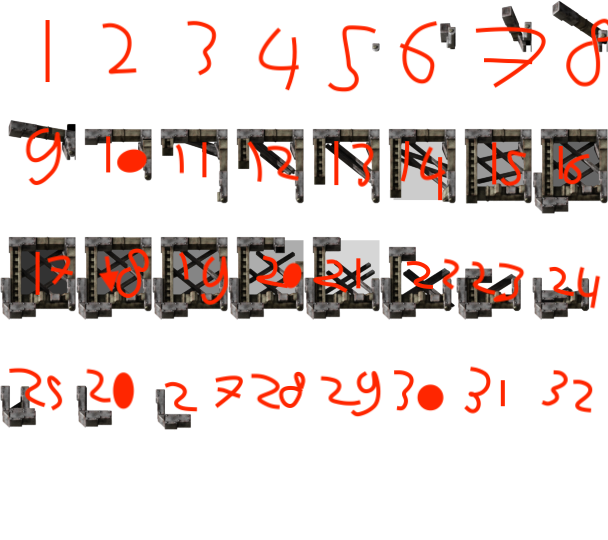 1 2 3 4 5 6 7 8
9 10 11 12 13 14 15 16
17 18 19 20 21 22 23 24
25 20 27 28 29 30 31 32